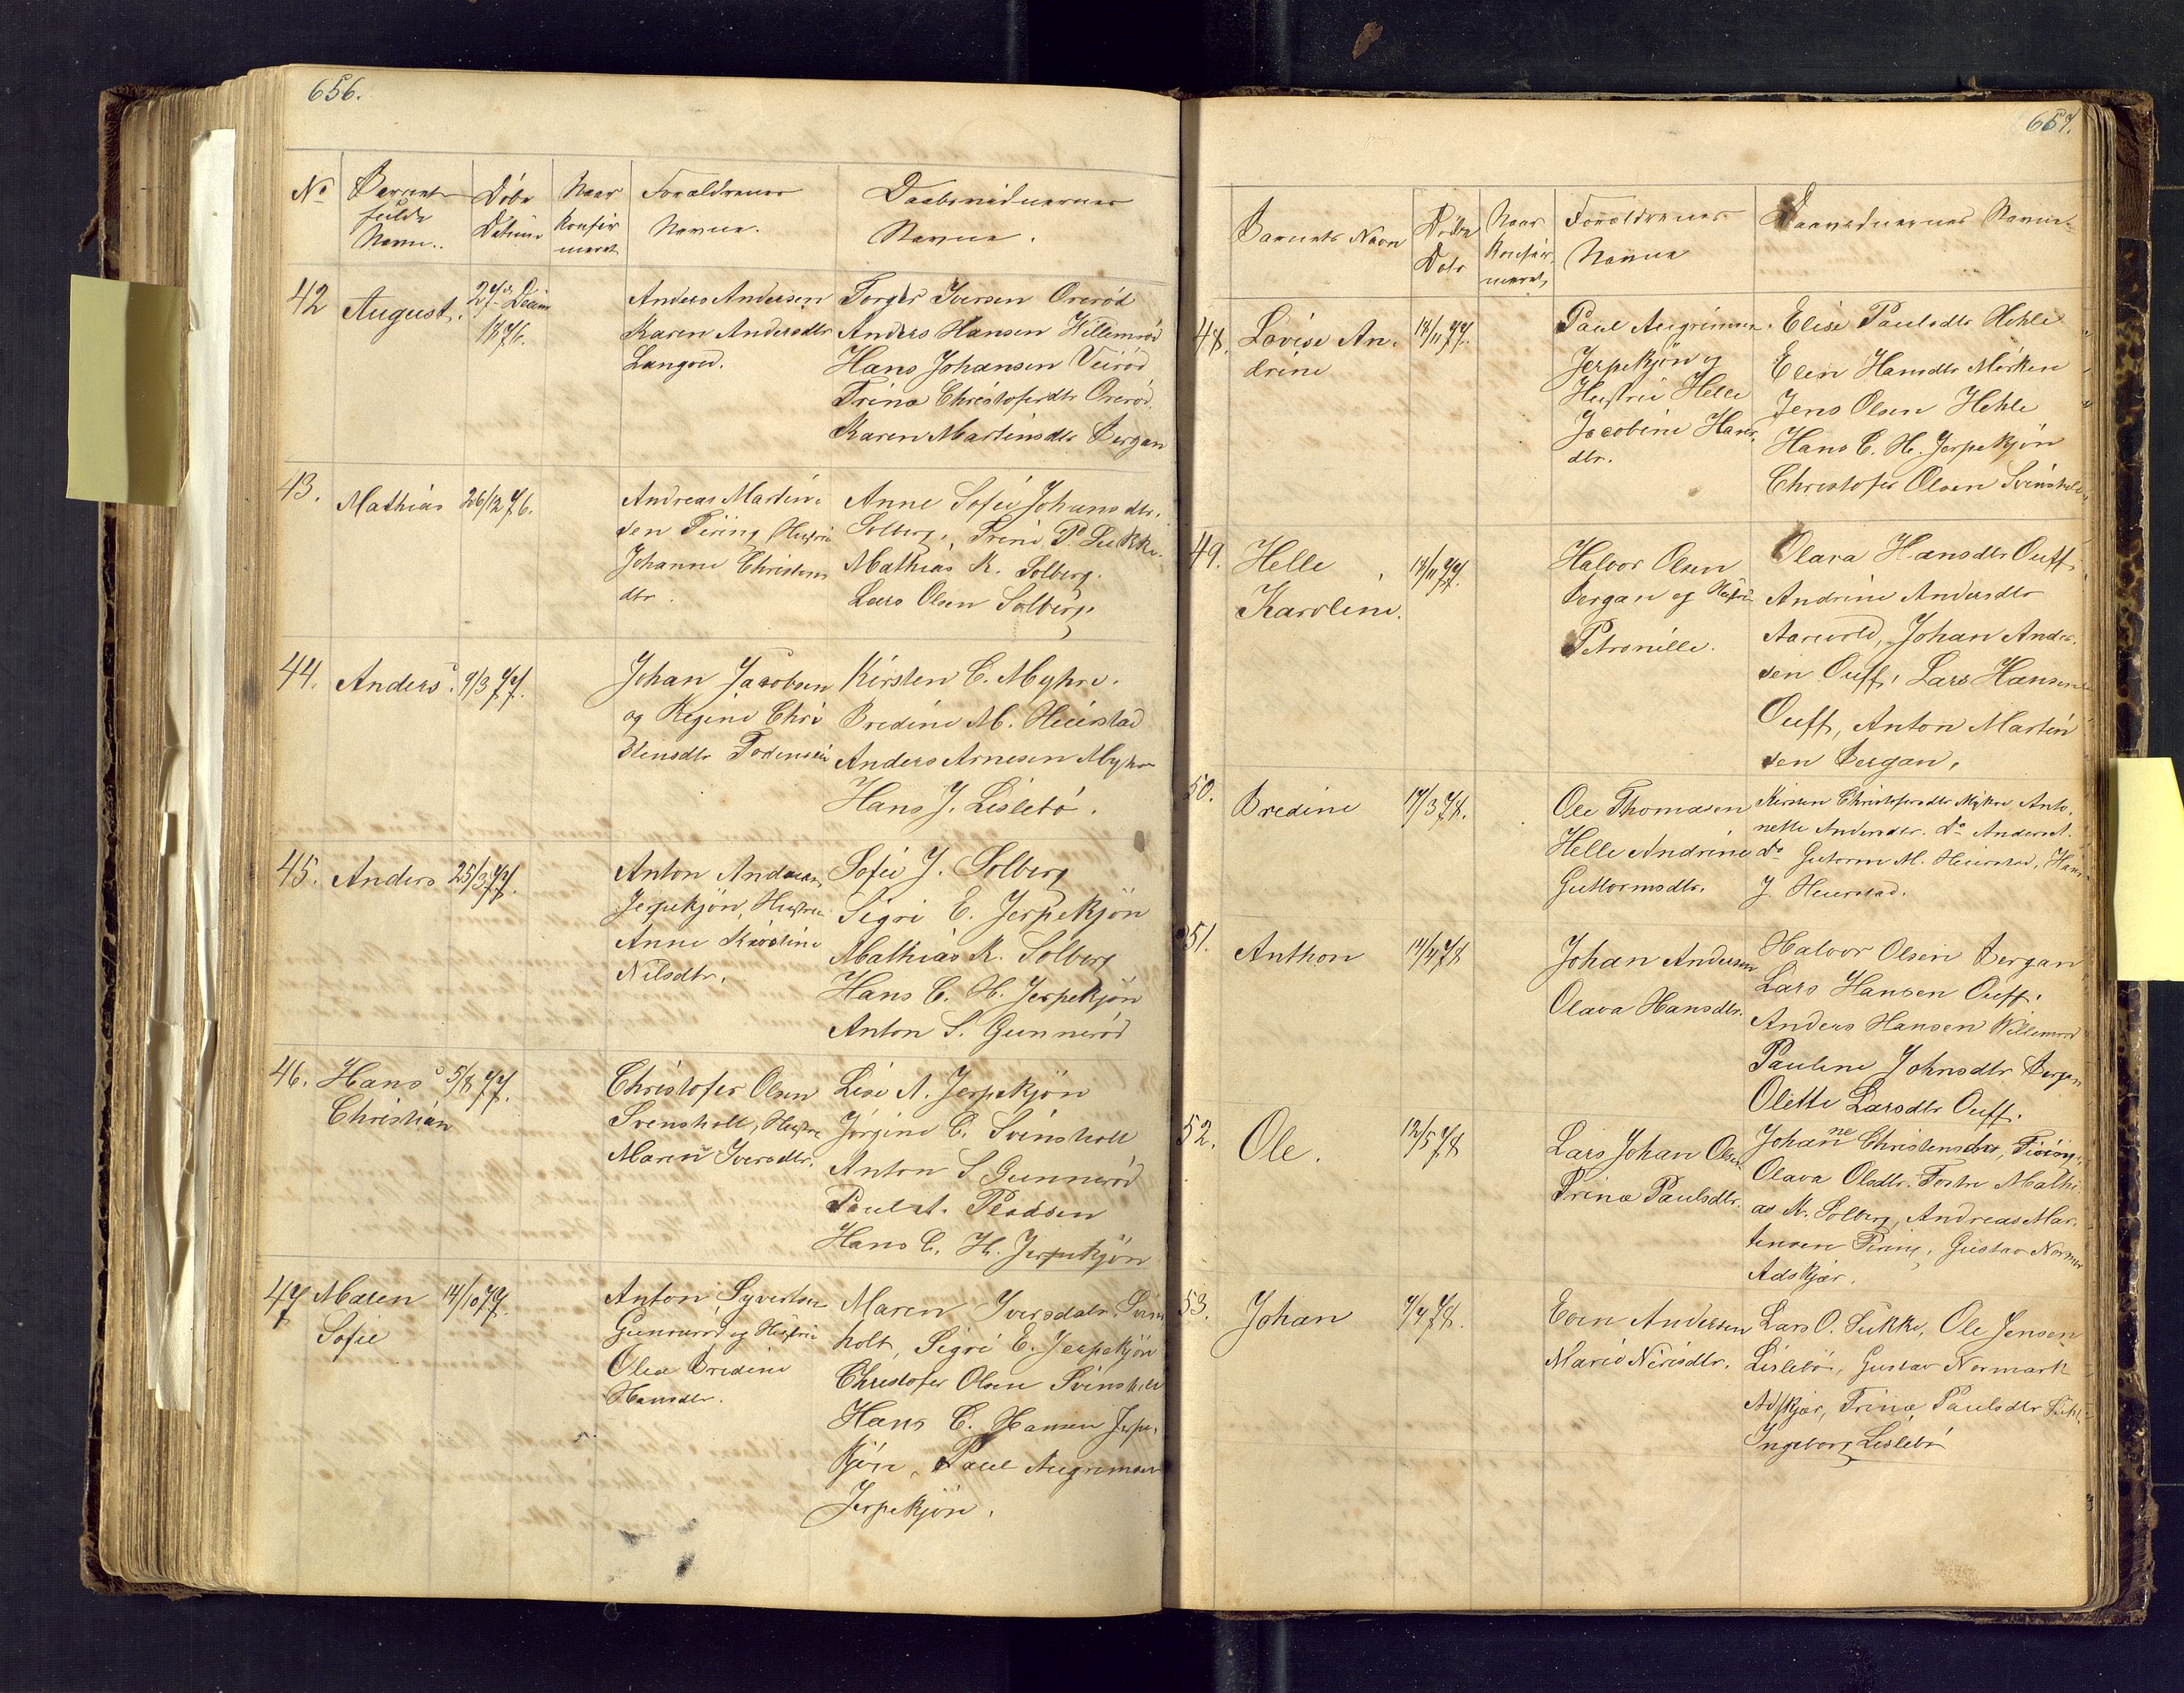 656.
No Barnets Døbe Naar Forældrenes Daabsvidnernes
fulde Datum Konfir Navne. Navne.
Navn.. meret
42 August. 27de Decem 1876.
Anders Andersen
Karen Andersdtr
Langrød.
Torger Iversen Orerød
Anders Hansen Willemrød
Hans Johansen Veirød
Trine Christofersdtr Orerød.
Karen Martinsdtr Bergan
43. Mathias 26/12 76.
Andreas Martin
sen Firing Hustru
Johanne Christens
dtr.
Anne Sofie Johansdtr.
Solberg, Trine P. Sukke.
Mathias K. Solberg.
Lars Olsen Solberg
44. Anders. 9/3 77.
Johan Jacobsen
og Regine Chri
stensdtr
Kirsten C. Myhre.
Bredine M. Heierstad
Anders Arnesen Myhre
Hans J. Lislebö.
45. Anders 25/3 77.
Anton Andersen
Jerpekjön, Hustru
Anne Karoline
Nilsdtr.
Sofie J. Solberg
Sigri E. Jerpekjön
Mathias K. Solberg
Hans C. H. Jerpekjön
Anton S. Gunneröd
46. Hans 5/8 77.
Christian
Christofer Olsen
Svensholt, Hustru
Maren Iversdtr.
Lise A. Jerpekjön
Jörgine C. Svinsholt
Anton S Gunneröd
Paul A. Pladsen
Hans C. H. Jerpekjön
47 Maren 14/10 77.
Sofie
Anton Syvertsen
Gunneröd og Hustru
Olea Bredine
Hansdtr.
Maren Iversdatr. Svins
holt, Sigri E. Jerpekjön
Christofer Olsen Svinsholt
Hans C. Hansen Jerpe,
kjön, Paul Augrimsen
Jerpekjön.
657.
Barnets Navn Døbe Naar Forældrenes Daabsvidnernes Navne
Dato Konfir Navne
meret,
48. Lovise An. 18/11 77.
drine
Paul Augrimsen.
Jerpekjön og
Hustru Helle
Jacobine Hans.
dtr.
Elise Paulsdtr Hehle
Elen Hansdtr Mörken
Jens Olsen Hehle
Hans C. H. Jerpekjön
Christofer Olsen Svinsholt
49. Helle 18/11 77.
Karoline.
Halvor Olsen
Bergan og Hustru
Petronille.
Olava Hansdtr Ouff,
Andrine Andersdtr
Aarvold, Johan Ander.
sen Ouff, Lars Hansen
Ouff, Anton Martin
sen Bergan,
50. Bredine 17/3 78.
Ole Thomasen
Helle Andrine
Guttormsdtr.
Kirsten Christofersdtr Myhre, Anto.
nette Andersdtr. Do Anders A.
Do Gutorm M. Heierstad, Hans
J. Heierstad.
51. Anthon 14/4 78
Johan Andersen
Olava Hansdtr.
Halvor Olsen Bergan
Lars Hansen Ouff.
Anders Hansen Willemrød
Pauline Johnsdtr Bergan
Olette Larsdtr Ouff.
52. Ole. 12/5 78
Lars Johan Olsen
Trine Paulsdtr.
Johanne Christensdtr, Firing,
Olava Olsdtr. Mathi
as K. Solberg, Andreas Mar.
tensen Firing, Gustav Normark
Adskjær.
53. Johan 7/7 78.
Even Andersen
Marie Nirisdtr.
Lars O. Sukke, Ole Jensen
Lislebö, Gustav Normark
Adskjær, Trine Paulsdtr Sukke
Ingeborg Lislebö